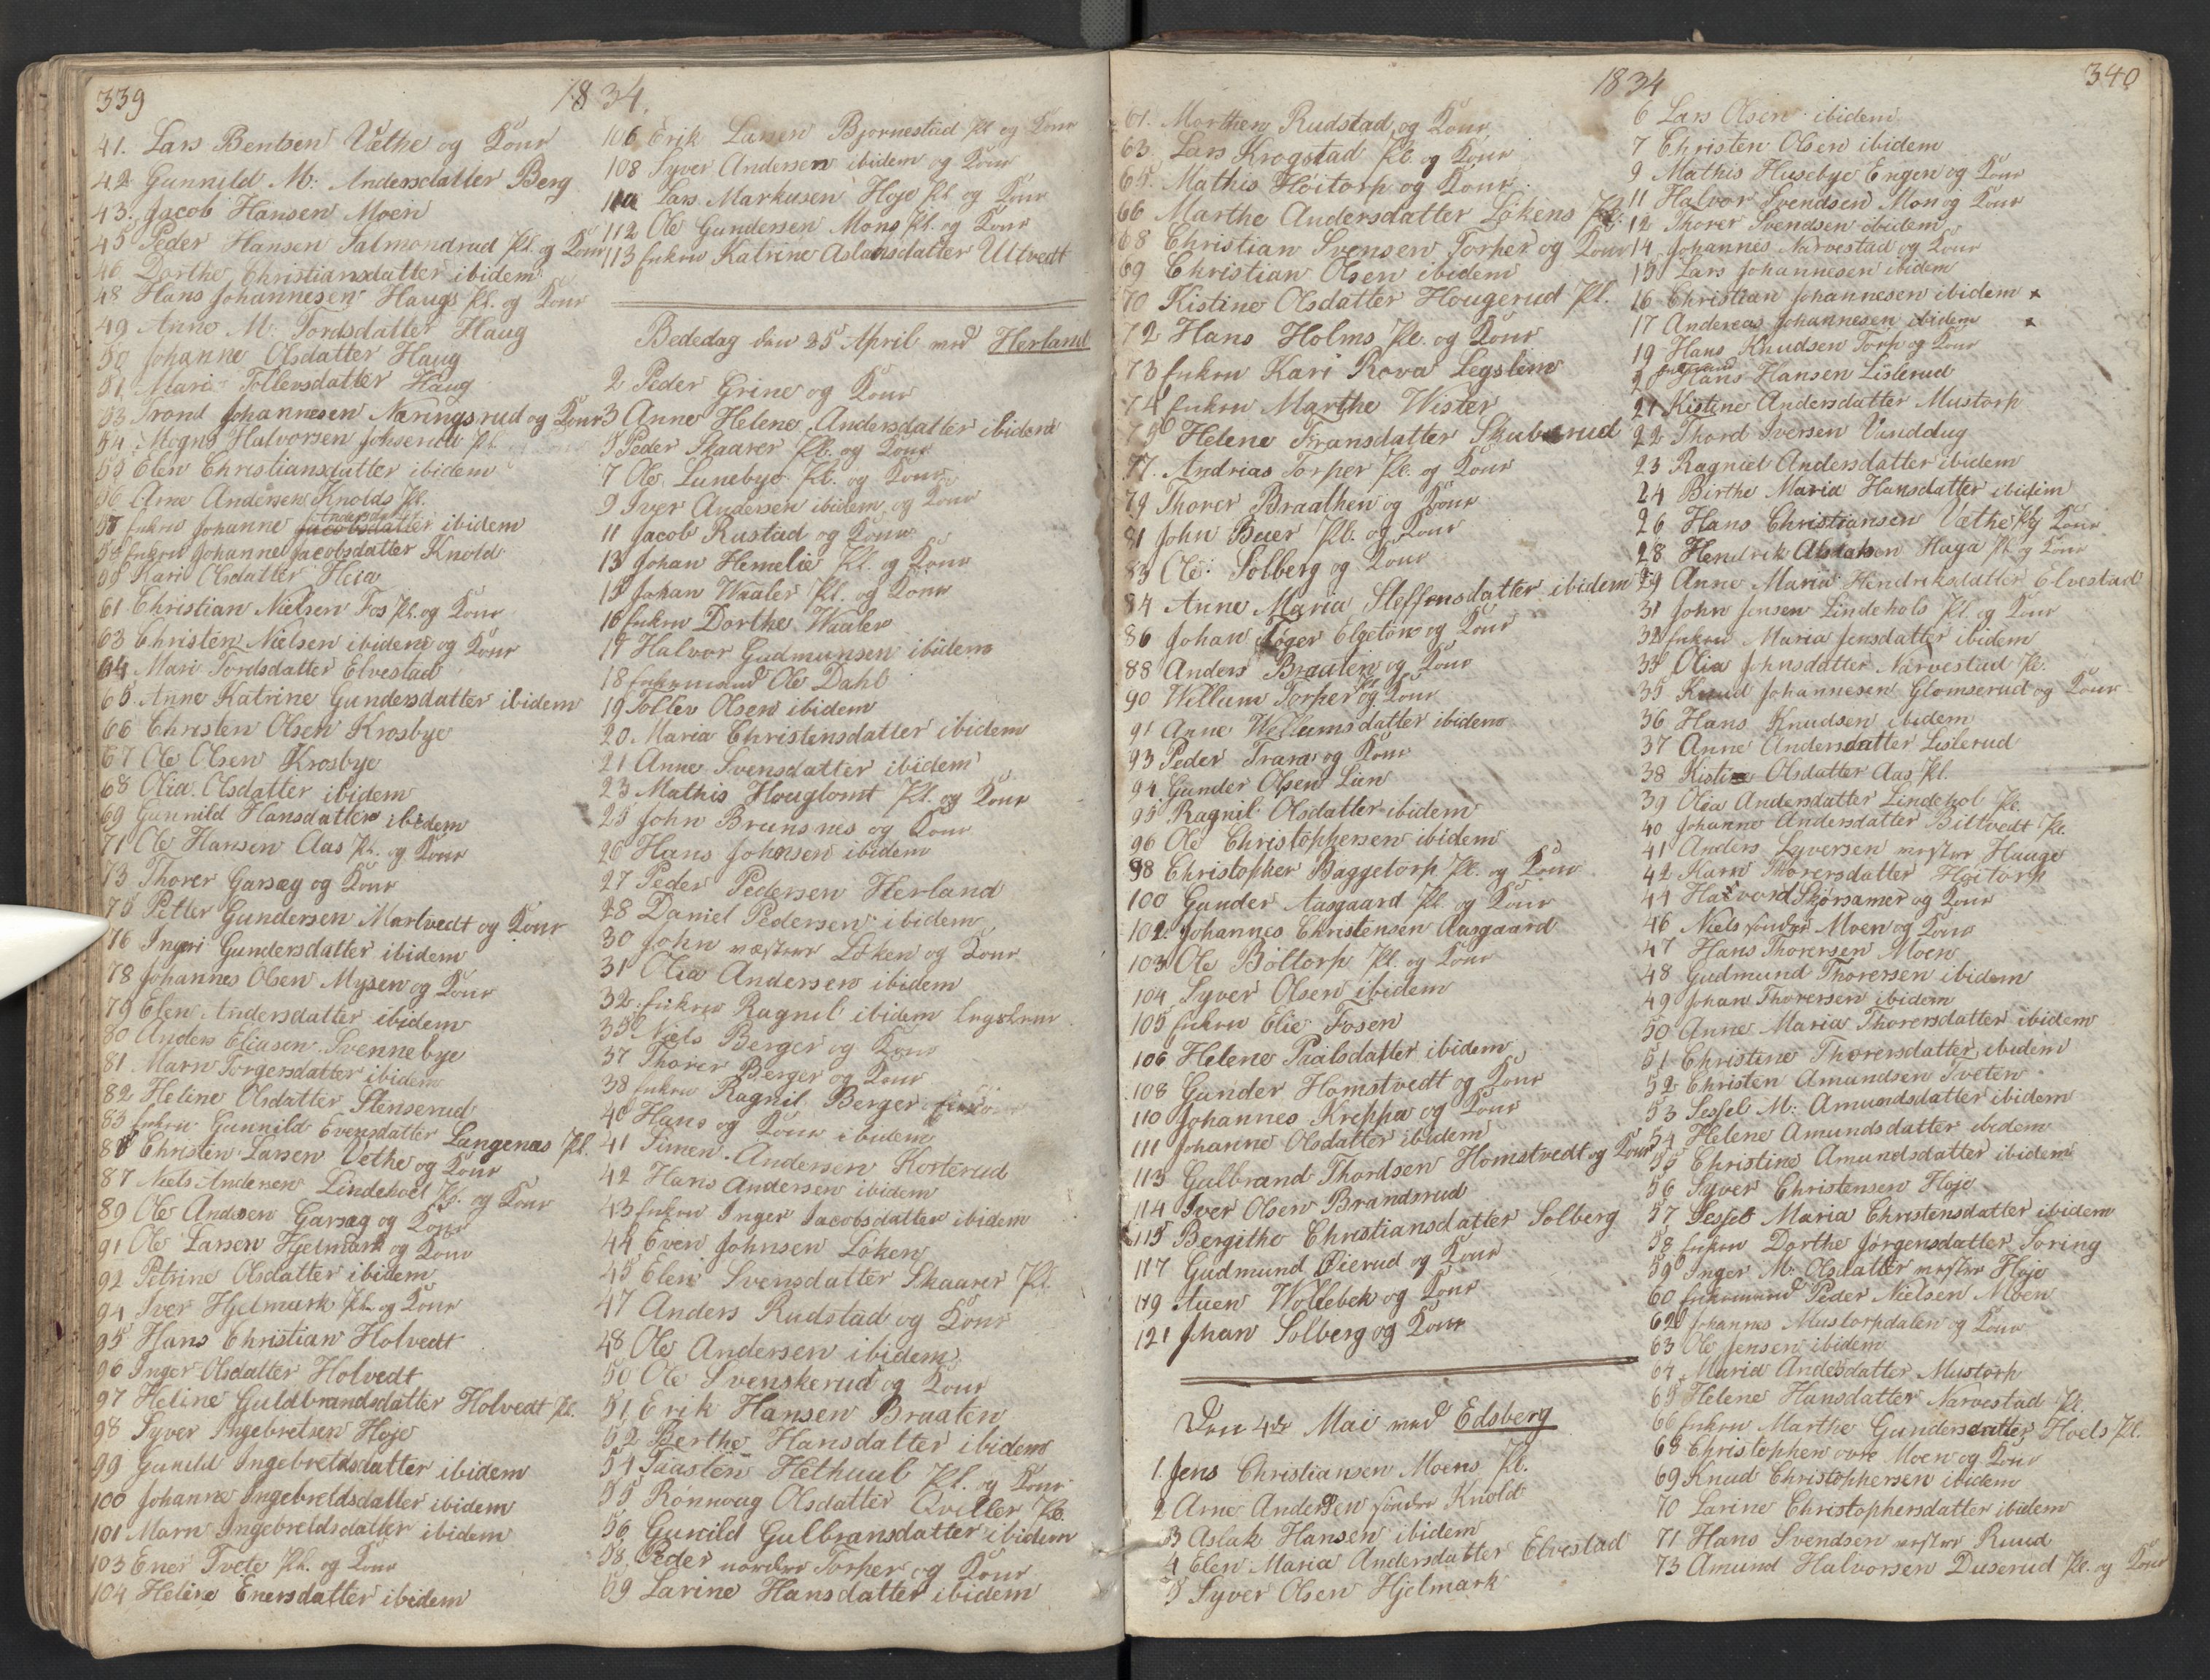 339
1834.
41. Lars Bentsen Vethe og Konr
42 Gunnild M: Andersdatter Berg
43. Jacob Hansen Moen
45 Peder Hansen Salmondrud Pl. og Konr
46 Dorthe Christiansdatter ibidem
48 Hans Johannesen Haugs Pl. og Konr
49 Anne M. Tordsdatter Haug
50 Johanne Olsdatter Haug
51 Mari Tollevsdatter Haug
53 Trond Johannesen Næringsrud og Konr
54 Mogns Halvorsen Pl.
55 Elen Christiansdatter ibidem
56 Arne Andersen Knolds Pl.
57 Enken Johanne Andersdatter ibidem
58 Enken Johanne Jacobsdatter Knold
59 Kari Olsdatter Heia
61 Christian Nielsen Fos Pl. og Konr
63 Christen Nielsen ibidem og Konr
64 Mari Tordsdatter Elvestad
65 Anne Katrine Gundersdatter ibidem
66 Christen Olsen Krosbye
67 Ole Olsen Krosbye
68 Olia Olsdatter ibidem
69 Gunnild Hansdatter ibidem
71 Ole Hansen Aas Pl. og Konr
73 Thorer Garsæg og Konr
75 Petter Gundersen Martvedt og Konr
76 Ingeri Gundersdatter ibidem
78 Johannes Olsen Mysen og Konr
79 Elen Andersdatter ibidem
80 Anders Eliasen Svennebye
81 Marn Torgersdatter ibidem
82 Heline Olsdatter Stenserud
83 Enken Gunnild Evensdatter Langenæs Pl.
85 Christen Larsen Vethe og Konr
87 Niels Andersen Lindehoel Pl. og Konr
89 Ole Andsen Garsæg og Konr
91 Ole Larsen Hjelmark og Konr
92 Petrine Olsdatter ibidem
94 Iver Hjelmark Pl. og Konr
95 Hans Christian Holvedt
96 Inger Olsdatter Holvedt
97 Heline Guldbrandsdatter Holvedt Pl.
98 Syver Ingebretsen Høje
99 Gunild Ingebretdsdatter ibidem
100 Johanne Ingebretdsdatter ibidem
101 Marn Ingebretdsdatter ibidem
103 Ener Tvete Pl. og Konr
104 Heline Enersdatter ibidem
106 Erik Larsen Bjørnestad Pl og Konr
108 Syver Andersen ibidem og Konr
110 Lars Markusen Hoje Pl. og Konr
112 Ole Gundersen Mons Pl. og Konr
113 Enken Katrine Aslaksdatter Utvedt
Bededag den 25 April med Herland
2 Peder Grine og Konr
3 Anne Helene Andersdatter ibidem
5 Peder Skaarer Pl. og Konr
7 Ole Lunebye Pl. og Konr
9 Iver Andersen ibidem og Konr
11 Jacob Rustad og Konr
13 Johan Hemelie Pl. og Konr
15 Johan Waaler Pl. og Konr
16 Enken Dorthe Waaler
17 Halvor Gudmunsen ibidem
18 Enkemand Ole Dahl
19 Tollev Olsen ibidem
20. Maria Christensdatter ibidem
21 Anne Svensdatter ibidem
23 Mathis Houglomt Pl. og Konr
25 John Brunsnes og Konr
26 Hans Johnsen ibidem
27 Peder Pedersen Herland
28 Daniel Pedersen ibidem
30 John vestre Løken og Konr
31 Olia Andersen ibidem
32 Enken Ragnil ibidem Legslem
35 Niels Berger og Konr
37 Thorer Berger og Konr
38 Enken Ragnil Berger
40 Hans og Konr ibidem
41 Simen Andersen Kosterud
42 Hans Andersen ibidem
43 Enken Inger Jacobsdatter ibidem
44 Even Johnsen Løken
45 Elen Svensdatter Skaarer Pl.
47 Anders Rudstad og Konr
48 Ole Andersen ibidem
50 Ole Svenskerud og Konr
51 Erik Hansen Braaten
52 Berthe Hansdatter ibidem
54 Taasten Hethuul Pl. og Konr
55 Rønnoug Olsdatter Qviller Pl.
56 Gunild Gulbransdatter ibidem
58 Peder nordre Torper og Konr
59 Larine Hansdatter ibidem
1834
340
61. Morthen Rudstad og Konr
63. Lars Krogstad Pl. og Konr
65. Mathis Hoitorp og Konr
66 Marthe Andersdatter Løkens Pl.
68 Christian Svensen Torper og Konr
69 Christian Olsen ibidem
70 Kistine Olsdatter Hougerud Pl.
72 Hans Holms Pl. og Konr
73 Enken Kari Rova Legslem
74 Enken Marthe Wister
75 Helene Fransdatter Skuberud
77. Andrias Torper Pl. og Konr
79 Thorer Braathen og Konr
81 John Buer Pl. og Konr
83 Ole Solberg og Konr
84 Anne Maria Steffensdatter ibidem
86 Johan Tøger Elgeton og Konr
88 Anders Brauten og Konr
90 Willum Torper Pl. og Konr
91 Anne Willumsdatter ibidem
93 Peder Trara og Konr
94 Gunder Olsen Lien
95 Ragnil Olsdatter ibidem
96 Ole Christophersen ibidem
98 Christopher Baggetorp Pl. og Konr
100 Gunder Aasgaard Pl. og Konr
102 Johannes Christensen Aasgaard
103 Ole Boltorp Pl. og Konr
104 Syver Olsen ibidem
105 Enken Elie Fosen
106 Helene Paalsdatter ibidem
108 Gunder Homstvedt og Konr
110 Johannes Kreppa og Konr
111 Johanne Olsdatter ibidem
113 Gulbrand Thordsen Homstvedt og Konr
114 Iver Olsen Brandsrud
115 Bergithe Christiansdatter Solberg
117 Gudmund Øierud og Konr
119 Auen Wollebek og Konr
121 Jhan Solberg og Konr
Den 4de Mai med Edsberg
1. Jens Christiansen Moens Pl.
2 Arne Andersen søndre Knold
3 Aslak Hansen ibidem
4 Elen Maria Andersdatter Elvestad
5 Syver Olsen Hjelmark
6 Lars Olsen ibidem
7 Christen Olsen ibidem
9 Mathis Husebye Engen og Konr
11 Halvor Svendsen Mon og Konr
12 Thorer Svendsen ibidem
14 Johannes Narvestad og Konr
15 Lars Johannesen ibidem
16 Christian Johannesen ibidem x
17 Andreas Johannesen ibidem x
19 Hans Knudsen Torp og Konr
20 Enkemand Hans Hansen Listerud
21 Kistine Andersdatter Mustorp
22 Thord Iversen Vanddug
23 Ragniel Andersdatter ibidem
24 Birthe Maria Hansdatter ibidem
26 Hans Christiansen Væthe Pl og Konr
28 Hendrik Haga Pl og Konr
29 Anne Maria Hendriksdatter Elvestad
31 John Jensen Lindehols Pl. og Konr
32 Enken Maria Jensdatter ibidem
33 Olia Johnsdatter Narvestad Pl.
35 Knud Johannesen Glomserud og Konr
36 Hans Knudsen ibidem
37 Anne Andersdatter Listerud
38 Kistine Olsdatter Aas Pl.
39 Olia Andersdatter Lindehol Pl.
40 Johanne Andersdatter Biltvedt Pl.
41 Anders Syversen vestre Hauge
42 Karn Thorersdatter Hoitorp
44 Halvord Skorsamer og Konr
46 Niels søndre Moen og Konr
47 Hans Thorersen Moen
48 Gudmund Thorersen ibidem
49 Johan Thorersen ibidem
50 Anne Maria Thorersdatter ibidem
51 Christine Thorersdatter ibidem
52 Christen Amundsen Tveten
53 Sessel M: Amundsdatter ibidem
54 Helene Amundsdatter ibidem
55 Christine Amundsdatter ibidem
56 Syver Christensen Høje
57 Sessel Maria Christensdatter ibidem
58 Enken Dorthe Jørgensdatter Soring
59 Inger M. Olsdatter vestre Høje
60 Enkemand Peder Nielsen Moen
62 Johannes Mustorpdalen og Konr
63 Ole Jensen ibidem
64 Maria Andersdatter Mustorp
65 Helene Hansdatter Narvestad Pl.
66 Enken Marthe Gundersdatter Hoels Pl.
68 Christopher øvre Moen og Konr
69 Knud Christophersen ibidem
70 Larine Christophersdatter ibidem
71 Hans Svendsen vestre Ruud
73 Amund Halvorsen Duserud Pl. og Konr